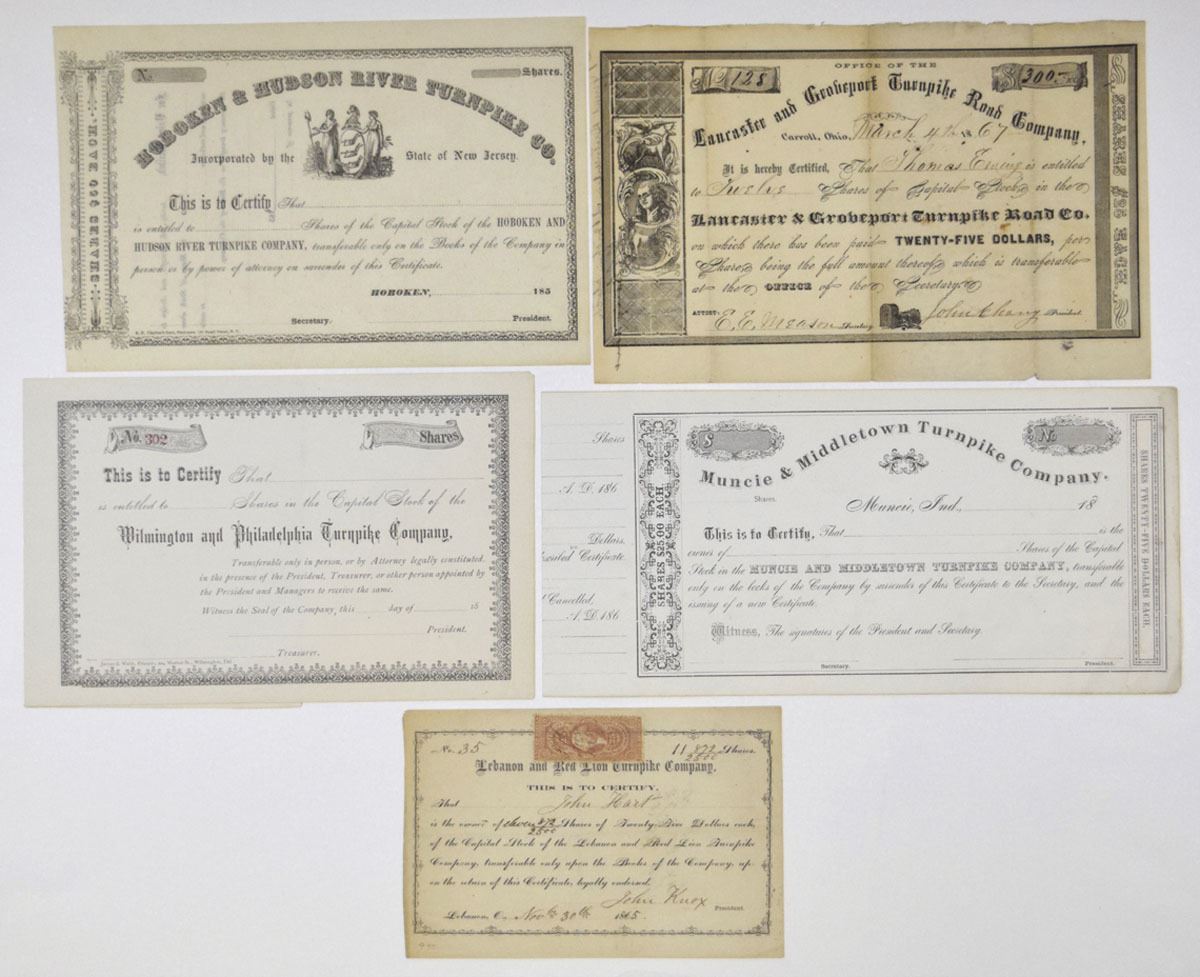 N.
Shares.
HOBOKEN & HUDSON RIVER TURNPIKE CO.
Incorporated by the State of New Jersey.
This is to Certify That
is entitled to Shares of the Capital Stock of the HOBOKEN AND
HUDSON RIVER TURNPIKE COMPANY, transferable only on the Books of the Company in
person or by power of attorney on surrender of this Certificate.
HOBOKEN, 185
Secretary. President.
SHARES $50 EACH
OFFICE OF THE
No 128
$300
Lancaster and Groveport Turnpike Road Company,
Carroll, Ohio, March 4th 1867
It is hereby Certified, That Thomas Ewing is entitled
to Twelve Shares of Capital Stock in the
Lancaster & Groveport Turnpike Road Co.
on which there has been paid TWENTY-FIVE DOLLARS, per
Share being the full amount thereof which is transferable
at the OFFICE of the Secretary.
ATTEST
E. E. Meason Secretary
John Chang President
SHARES $25 EACH
No. 302
Shares
This is to Certify That
is entitled to Shares in the Capital Stock of the
Wilmington and Philadelphia Turnpike Company,
Transferable only in person, or by Attorney legally constituted,
in the presence of the President, Treasurer, or other person appointed by
the President and Managers to receive the same.
Witness the Seal of the Company, this day of 18
President.
Treasurer.
Shares
A. D. 186
Dollars,
Certificate.
Cancelled,
A. D. 186
SHARES $25.00 EACH.
$
No.
Muncie & Middletown Turnpike Company.
Shares.
Muncie, Ind., 18
This is to Certify, That is the
owner of Shares of the Capital
Stock in the MUNCIE AND MIDDLETOWN TURNPIKE COMPANY, transferable
only on the books of the Company by surrender of this Certificate to the Secretary, and the
issuing of a new Certificate.
Witness, The signatures of the President and Secretary.
Secretary. President.
SHARES TWENTY-FIVE DOLLARS EACH.
No. 35
11 872/2500 Shares.
Lebanon and Red Lion Turnpike Company,
THIS IS TO CERTIFY,
That John Hart
is the owner of eleven 872/2500 Shares of Twenty-Five Dollars each,
of the Capital Stock of the Lebanon and Red Lion Turnpike
Company, transferable only upon the Books of the Company, up-
on the return of this Certificate, legally endorsed.
John Knox President.
Lebanon, O., Nov. 30th 1865.